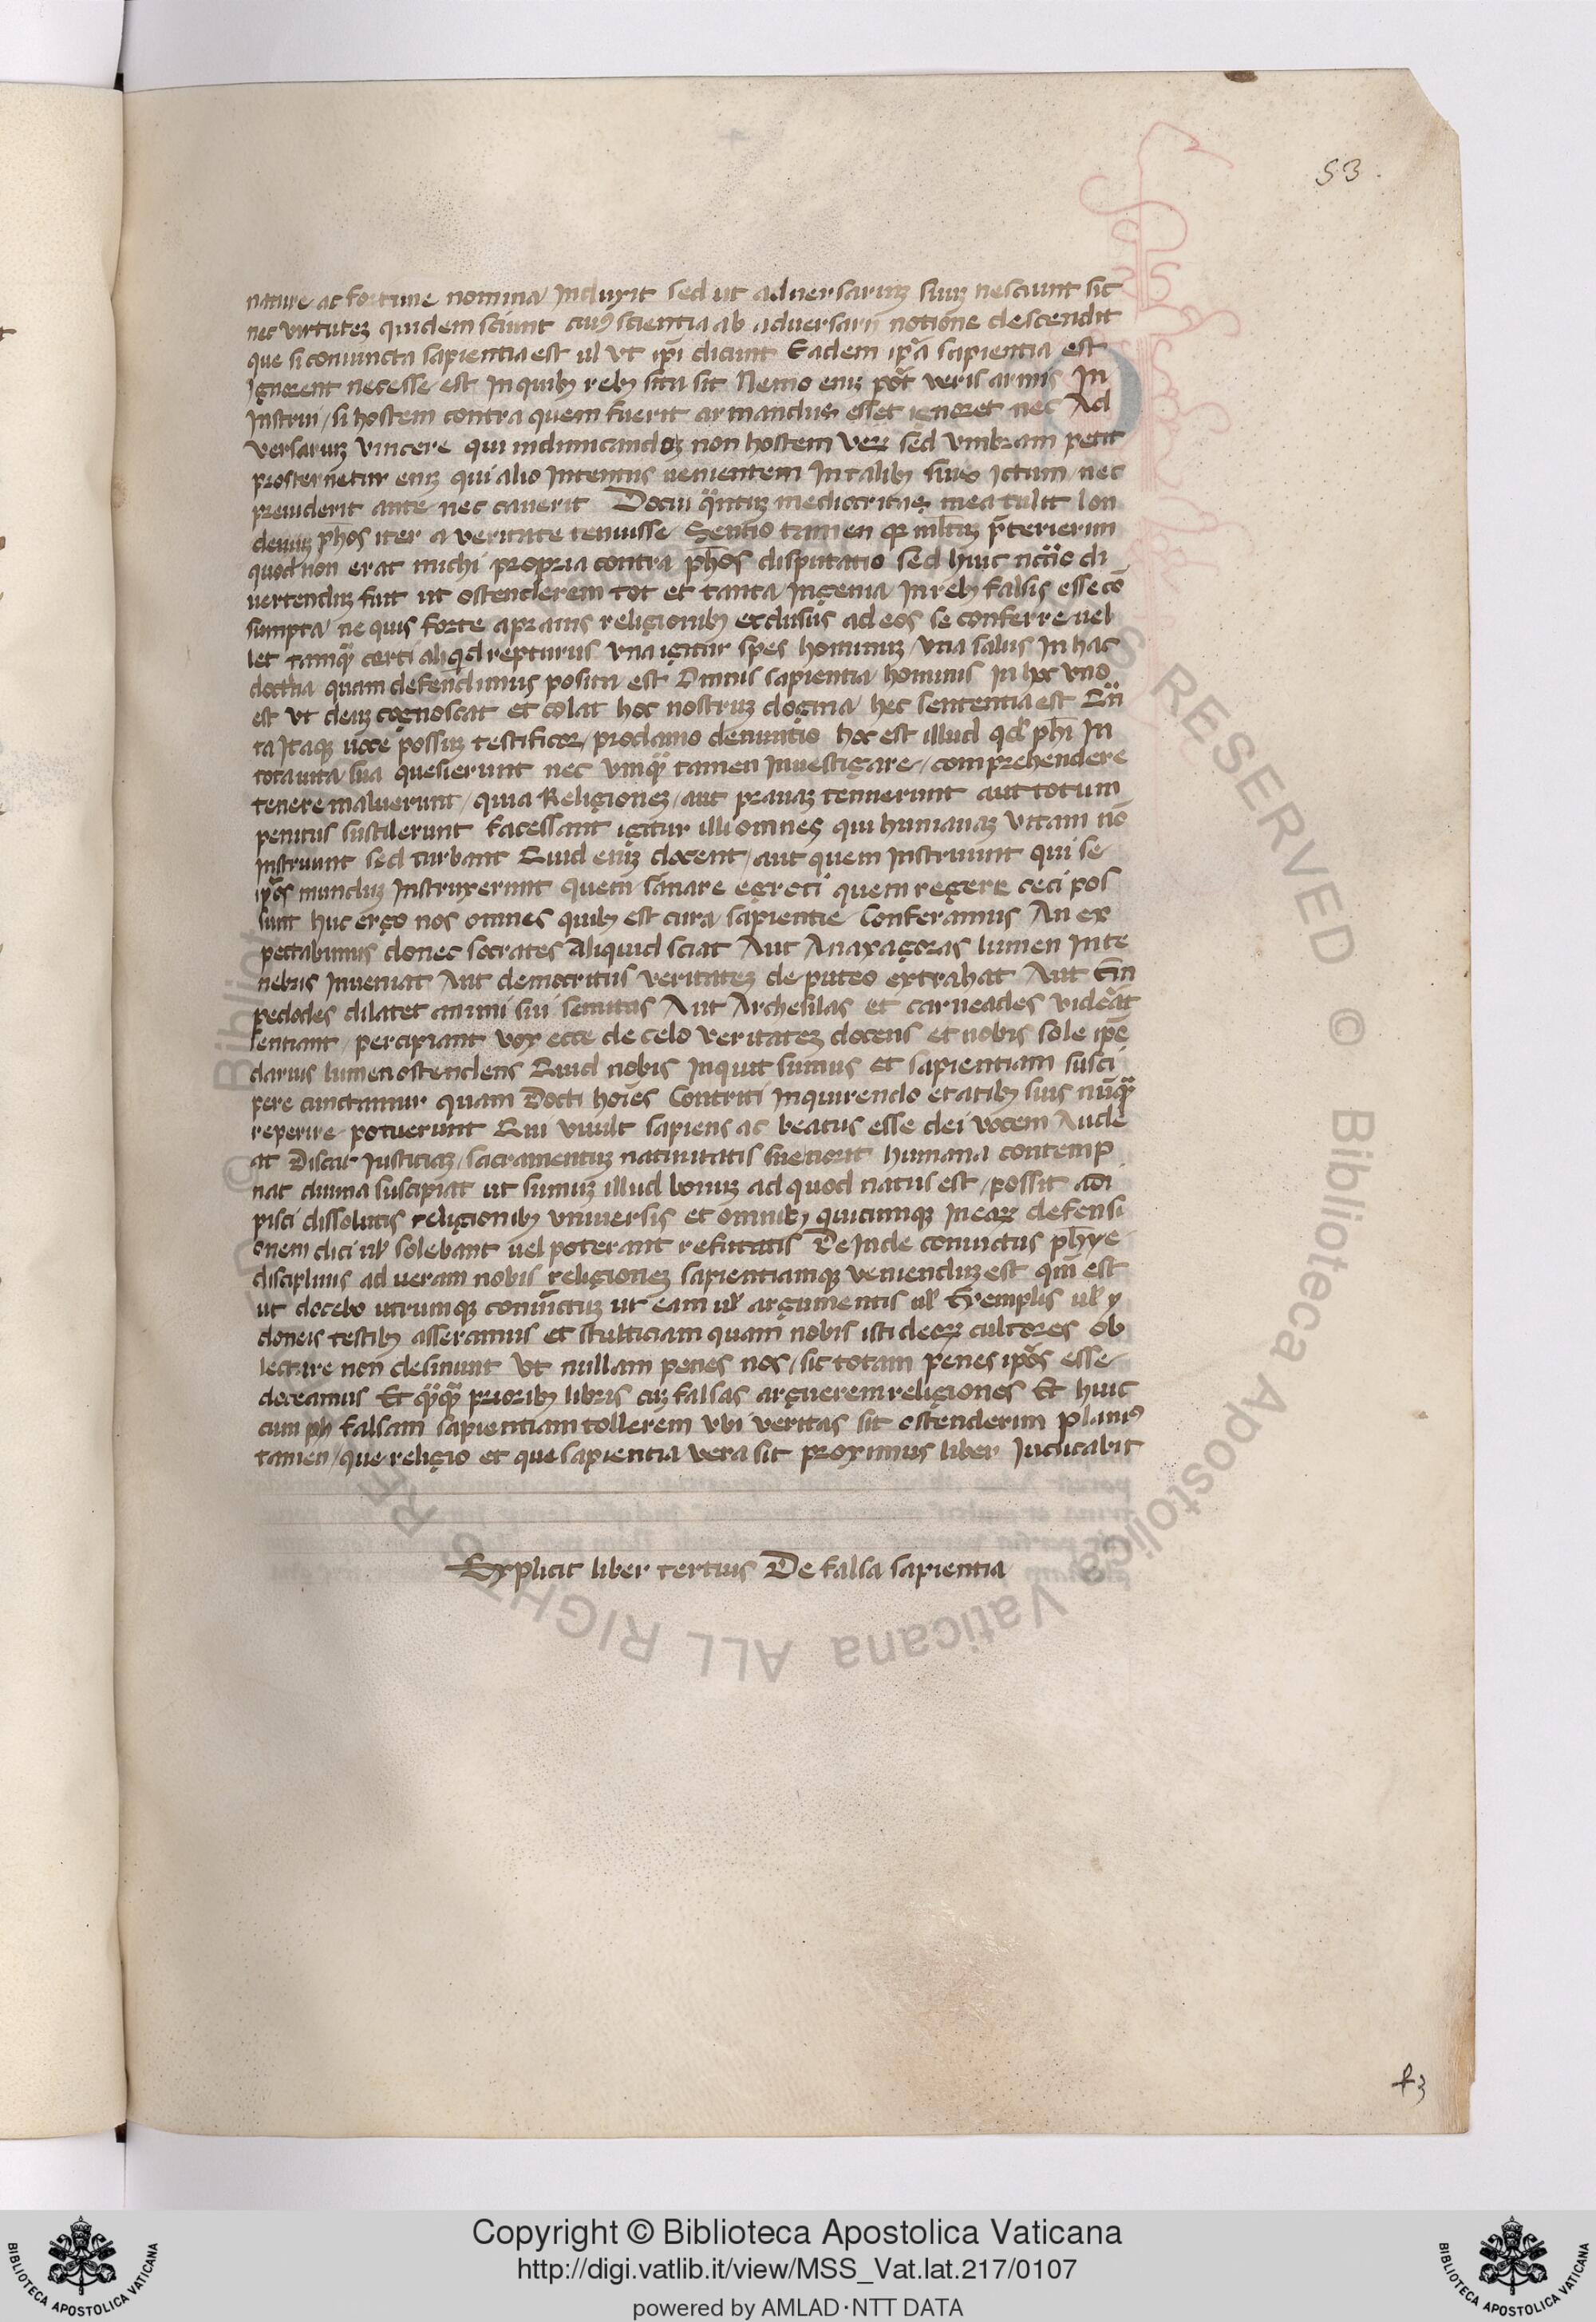 53.
nature ac fortune nomina induxit sed ut adversariuꝫ suuꝫ nesciunt sic
nec virtuteꝫ quidem sciunt cuiꝰ scientia ab adversarii notione descendit
que si coniuncta sapientia est ul̕ ut ip̄i dicunt Eadem ip̄a sapientia est
Ignorent necesse est In quibꝫ rebꝫ sita sit Nemo eniꝫ pōt veris armis In
Instrui / si hostem contra quem fuerit armandus esset ignoret nec Ad
versariuꝫ vincere qui in dimicandoꝫ non hostem veꝝ sed vmbram petit
prosternetur eniꝫ qui alio Intentus venientem In talibꝫ suro Ictum / nec
previderit ante nec caverit Docui q̄ntuꝫ mediocritas mea tulit lon
devium ph̄os iter a veritate tenuisse Sentio tamen ꝙ ml̄ta p̄terierim
quod non erat michi propria contra ph̄os disputatio sed huc nc̄c̄io di
vertenduꝫ fuit ut ostenderem tot et tanta Ingenia In rebꝫ falsis esse cō
sumpta ne quis forte a pravis religionibꝫ exclusus ad eos se conferre vel
let tamq̄ certi aliqd repturus Vna igitur spes hominuꝫ / vna salus In hac
doct̄na quam defendimus posita est Omnis sapientia hominis In hoc vno
est ut deuꝫ cognoscat et colat hoc nostruꝫ dogma hec sententia est Q̄n
ta Itaqꝫ voce possuꝫ testificor / proclamo denuntio hoc est illud qd̕ ph̄i In
tota vita sua quesierunt nec vmq̄ tamen Investigare / comprehendere
tenere maluerunt / quia Religioneꝫ / aut pravaꝫ tenuerunt aut totum
penitus sustulerunt facessant igitur illi omnes qui humanaꝫ vitam nō
Instruunt sed turbant Quid eniꝫ docent / aut quem Instruunt qui se
ip̄os mundum Instruxerunt quem sanare egroti quem regere ceci pos
sunt huc ergo nos omnes quibꝫ est cura sapientie Conferamus An ex
pectabimus donec socrates Aliquid sciat Aut Anaxagoras lumen In te
nebris Inveniat Aut democritus veritateꝫ de puteo extrahat Aut Em̄
pedocles dilatet animi sui semitas Aut Archesilas et carneades videāt
sentiant / percipiant vox ecce de celo veritateꝫ docens et nobis sole ip̄e
darius lumen ostendens Quid nobis Inquit sumus et sapientiam susci
pere cunctamur quam Docti hoīes Contriti Inquirendo etatibꝫ suis nūq̄
reperire potuerunt Qui vuult sapiens ac beatus esse dei vocem Aude
at Discat Iusticiaꝫ / sacramentuꝫ nativitatis sue norit humana contemp
nat divina suscipiat ut sumuꝫ illud bonuꝫ ad quod natus est / possit adi
pisci dissolutis religionibꝫ vniversis et omnibꝫ quicumqꝫ In eaꝝ defensi
onem dici ul̕ solebant vel poterant refutatis De Inde convictus ph̄ye
disciplinis ad veram nobis religioneꝫ sapientiamqꝫ veniendum est qm̄ est
ut docebo utrumqꝫ coniu̅ctuꝫ ut eam ul̕ argumentis ul̕ Exemplis ul̕ y
doneis testibꝫ asseramus et stulticiam quam nobis isti deoꝝ cultores ob
lectare non desinunt Ut nullam penes nos / sic totam penes ip̄os esse
doceamus Et q̄q̄ prioribꝫ libris cuꝫ falsas arguerem religiones Et huic
cum ph̄ falsam sapientiam tollerem vbi veritas sit ostenderim planiꝰ
tamen / que religio et que sapientia vera sit proximus liber Indicabit
Explicit liber tertius De falsa sapientia
f3
© Biblioteca Apostolica Vaticana ALL RIGHTS RESERVED © Biblioteca Apostolica Vaticana ALL RIGHTS RESERVED
Copyright © Biblioteca Apostolica Vaticana
http://digi.vatlib.it/view/MSS_Vat.lat.217/0107
powered by AMLAD·NTT DATA
BIBLIOTECA APOSTOLICA VATICANA
BIBLIOTECA APOSTOLICA VATICANA